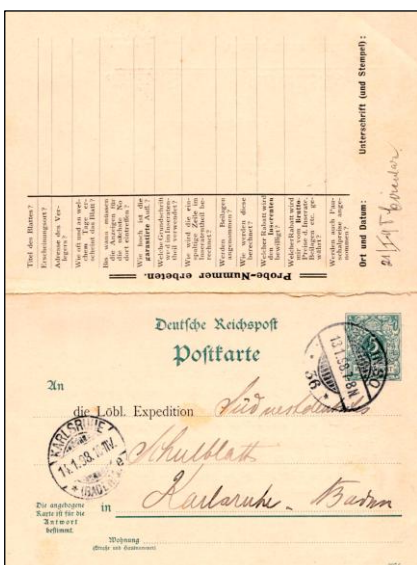 Titel des Blattes?
Erscheinungsort?
Adresse des Ver-
legers?
Wie oft und an wel-
chem Tage er-
scheint das Blatt?
Bis wann müssen
die Anzeigen für
die nächste No
dort eintreffen?
Wie hoch ist die
garantirte Aufl.?
Welche Grundschrift
wird im Inseraten-
theil verwendet?
Wie wird die ein-
spaltige Zeile im
Inseratentheil be-
rechnet?
Werden Beilagen
angenommen?
Wie werden diese
berechnet?
Welcher Rabatt wird
den Inserenten
bewilligt?
Welcher Rabatt wird
mir vom Brutto-
Preise d. Inserate,
Beilagen etc. ge-
währt?
Werden auch Pau-
schalpreise ange-
nommen?
Ort und Datum:
Unterschrift (und Stempel):
Probe-Nummer erbeten.
Deutsche Reichspost
Postkarte
13.1.98.7-8N.
* 36 *
An
die Löbl. Expedition Südwestdeutsches
Schulblatt
KARLSRUHE
14.1.98.
(BADEN)
in Karlsruhe Baden
Die angebogene
Karte ist für die
Antwort
bestimmt.
Wohnung
(Straße und Hausnummer)